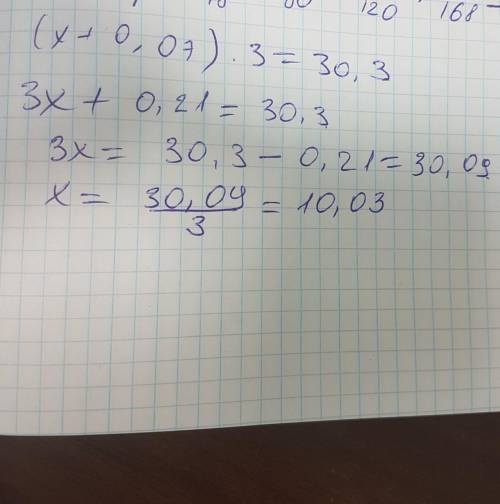 120 168
(x + 0,07) · 3 = 30,3
3x + 0,21 = 30,3
3x = 30,3 - 0,21 = 30,09
x = 30,09/3 = 10,03